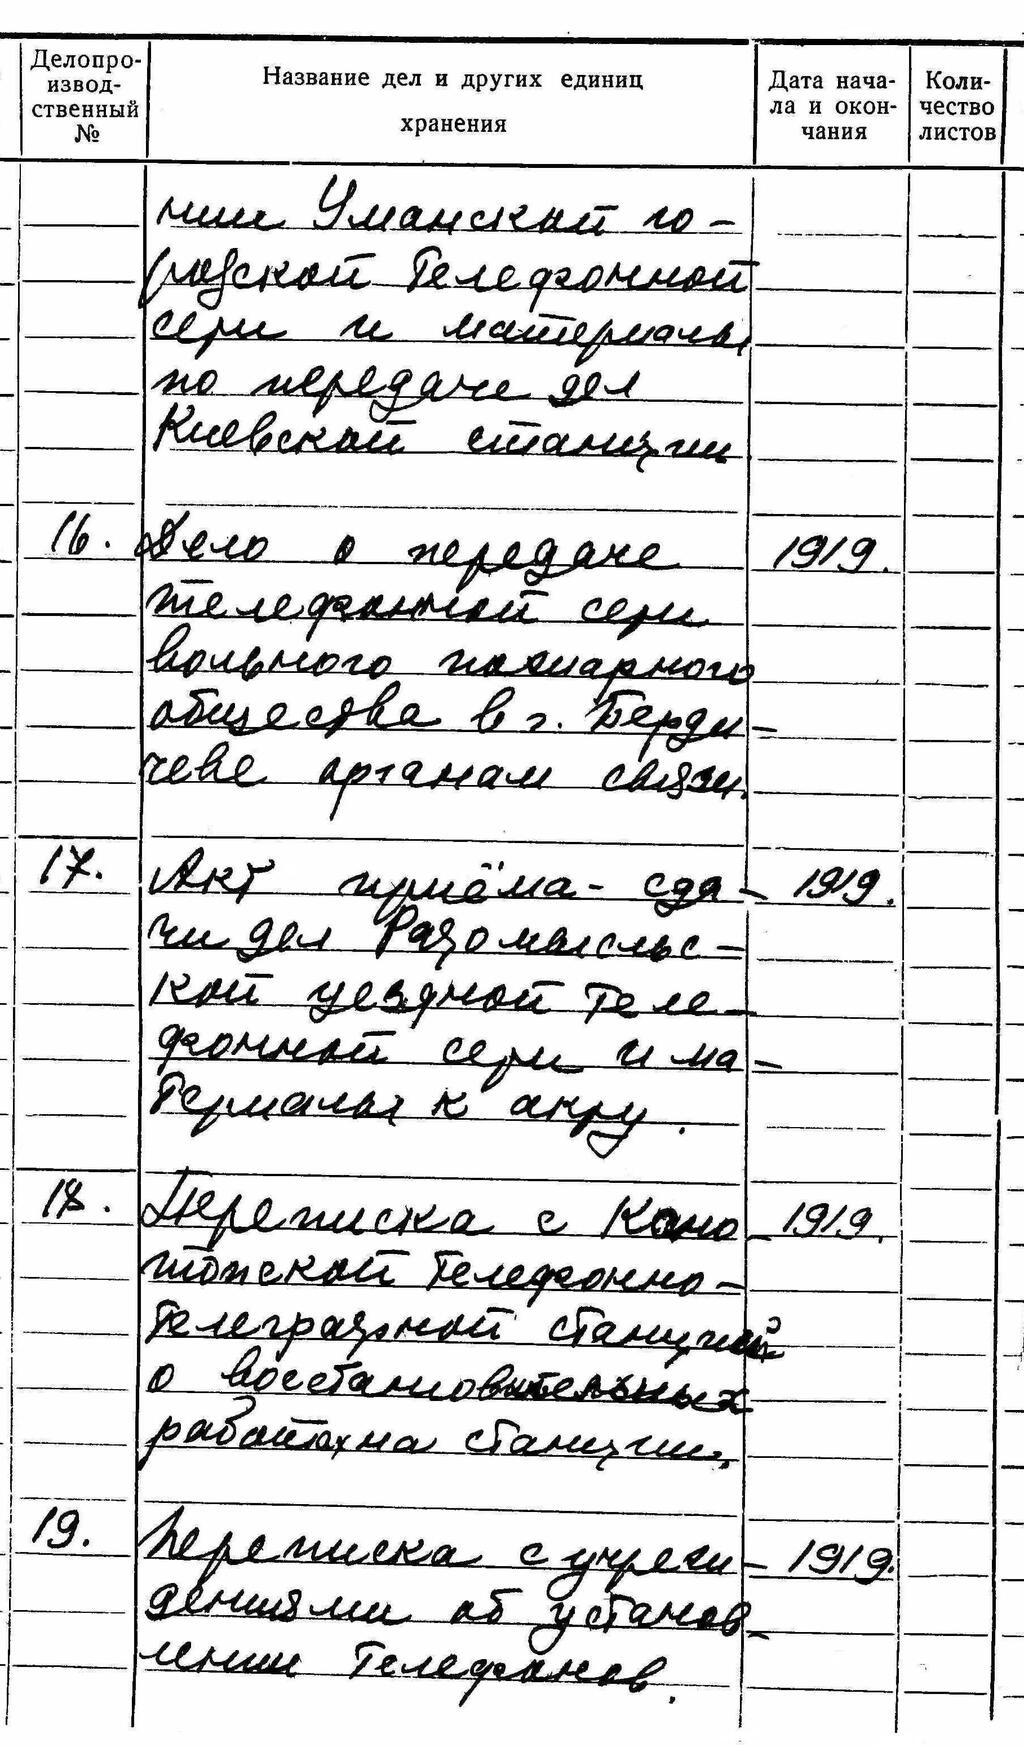 Делопро-
извод-
ственный
№
Название дел и других единиц
хранения
Дата нача-
ла и окон-
чания
Коли-
чество
листов
нии Уманской го-
родской телефонной
сети и материалы
по передаче дел
Киевской станции
16. Дело о передаче 1919.
телефонной сети
вольного пожарного
общества в г. Берди-
чеве органам связи.
17. Акт приёма-сда- 1919.
чи дел Радомысльс-
кой уездной теле-
фонной сети и ма-
териалы к акту.
18. Переписка с Коно- 1919.
топской телефонно-
телеграфной станцией
о восстановительных
работах на станции.
19. Переписка с учреж- 1919.
дениями об установ-
лении телефонов.